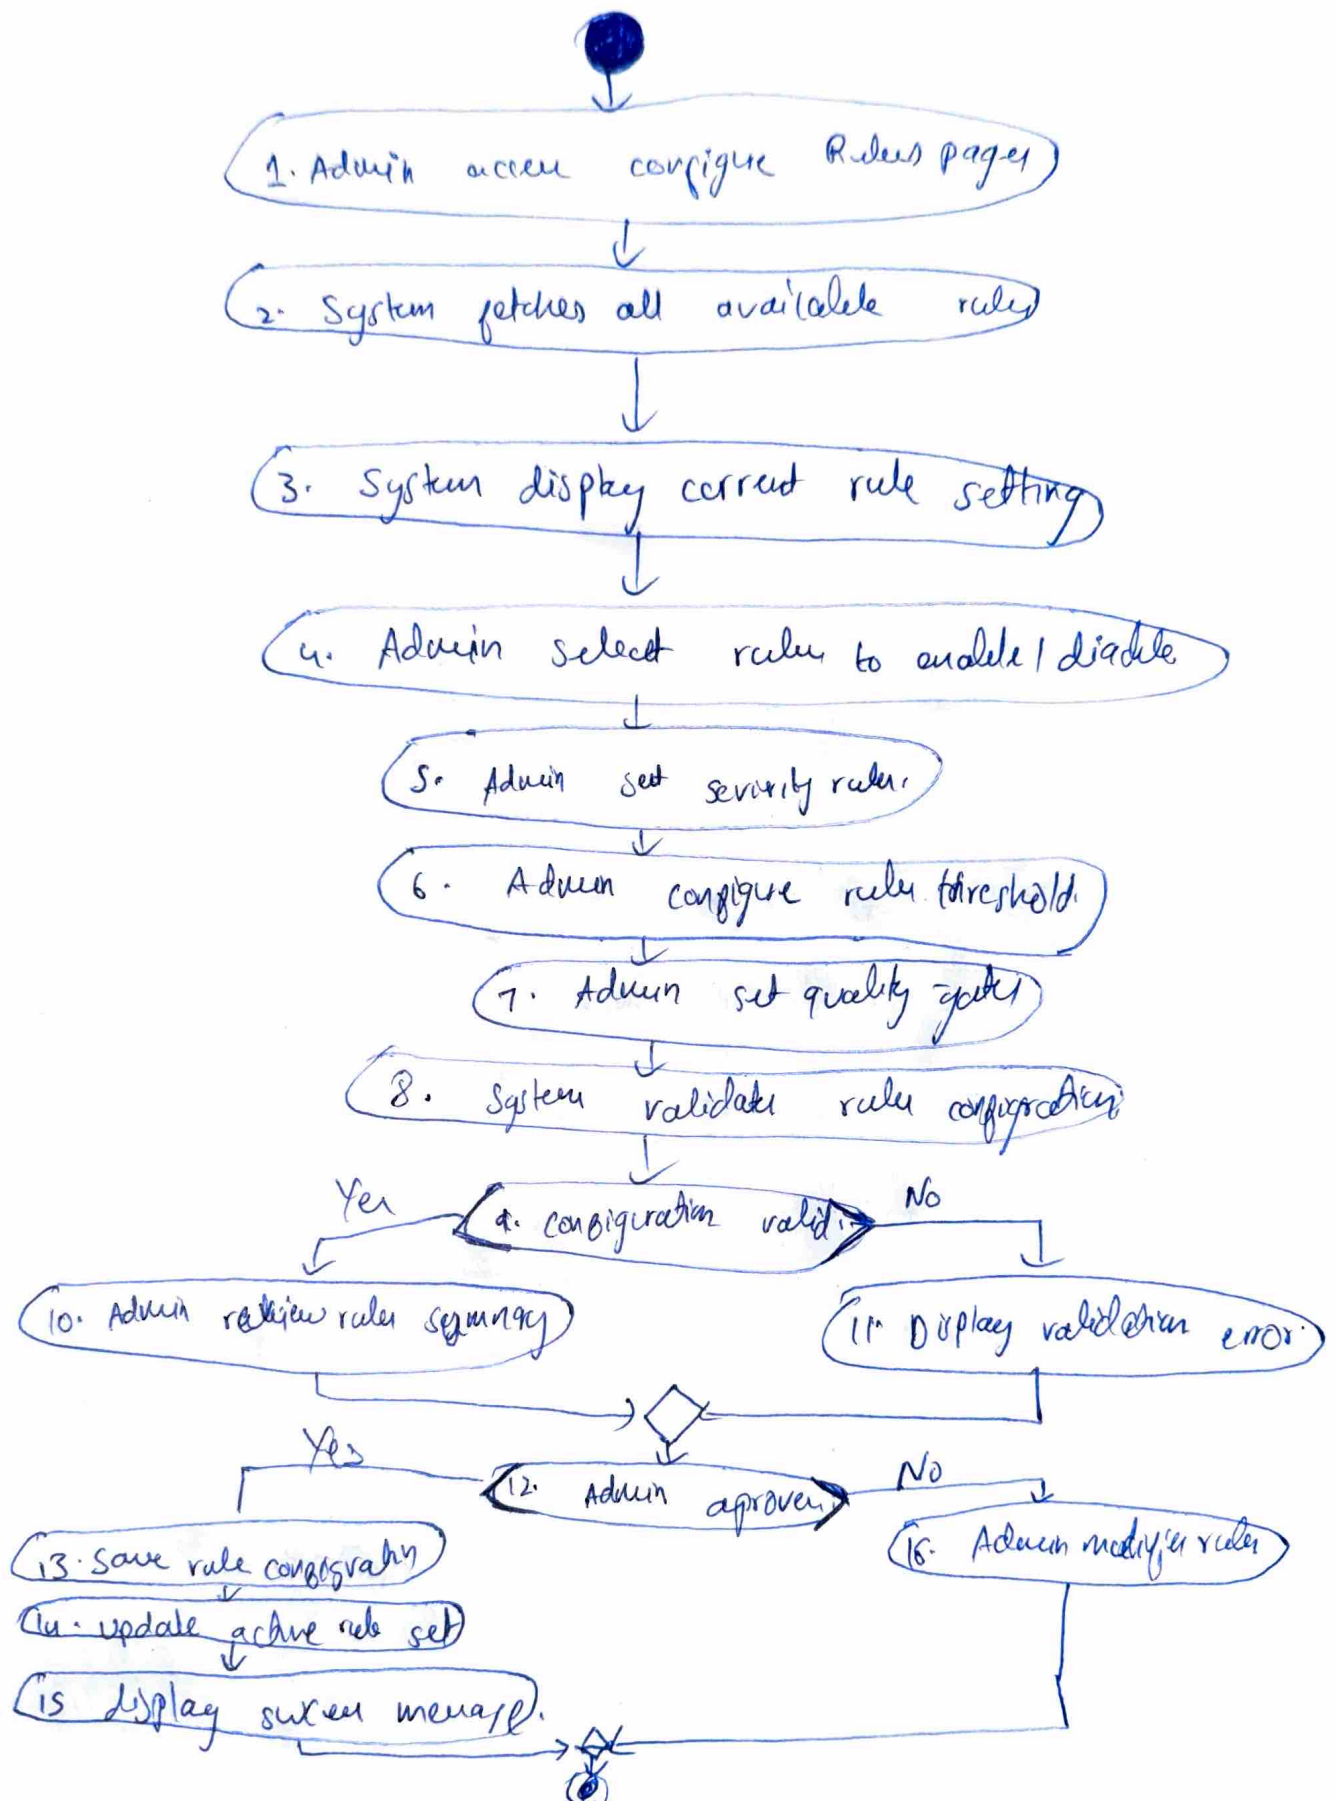 1. Admin accew configure Rules pages
2. System fetches all available rules
3. System display corrent rule setting
4. Admin select rules to enable/diable
5. Admin set severity rules.
6. Admin configure rules threshold.
7. Admin set quality gates
8. System validate rules configration
Yes
9. configuration valid.
No
10. Admin review rules
11. Display validation error.
Yes
12. Admin aproves.
No
13. Save rule configration
16. Admin modifies rules
14. update active rule set
15 display message.